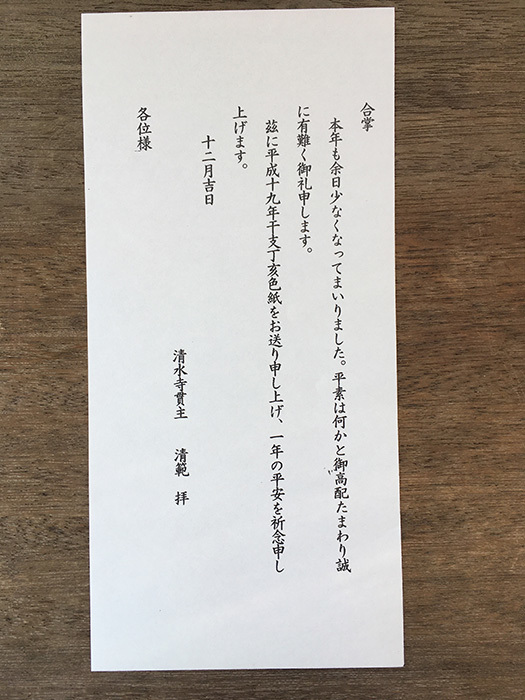 合掌
本年も余日少なくなってまいりました。平素は何かと御高配たまわり誠
に有難く御礼申します。
茲に平成十九年干支丁亥色紙をお送り申し上げ、一年の平安を祈念申し
上げます。
十二月吉日
清水寺貫主 清範 拝
各位様